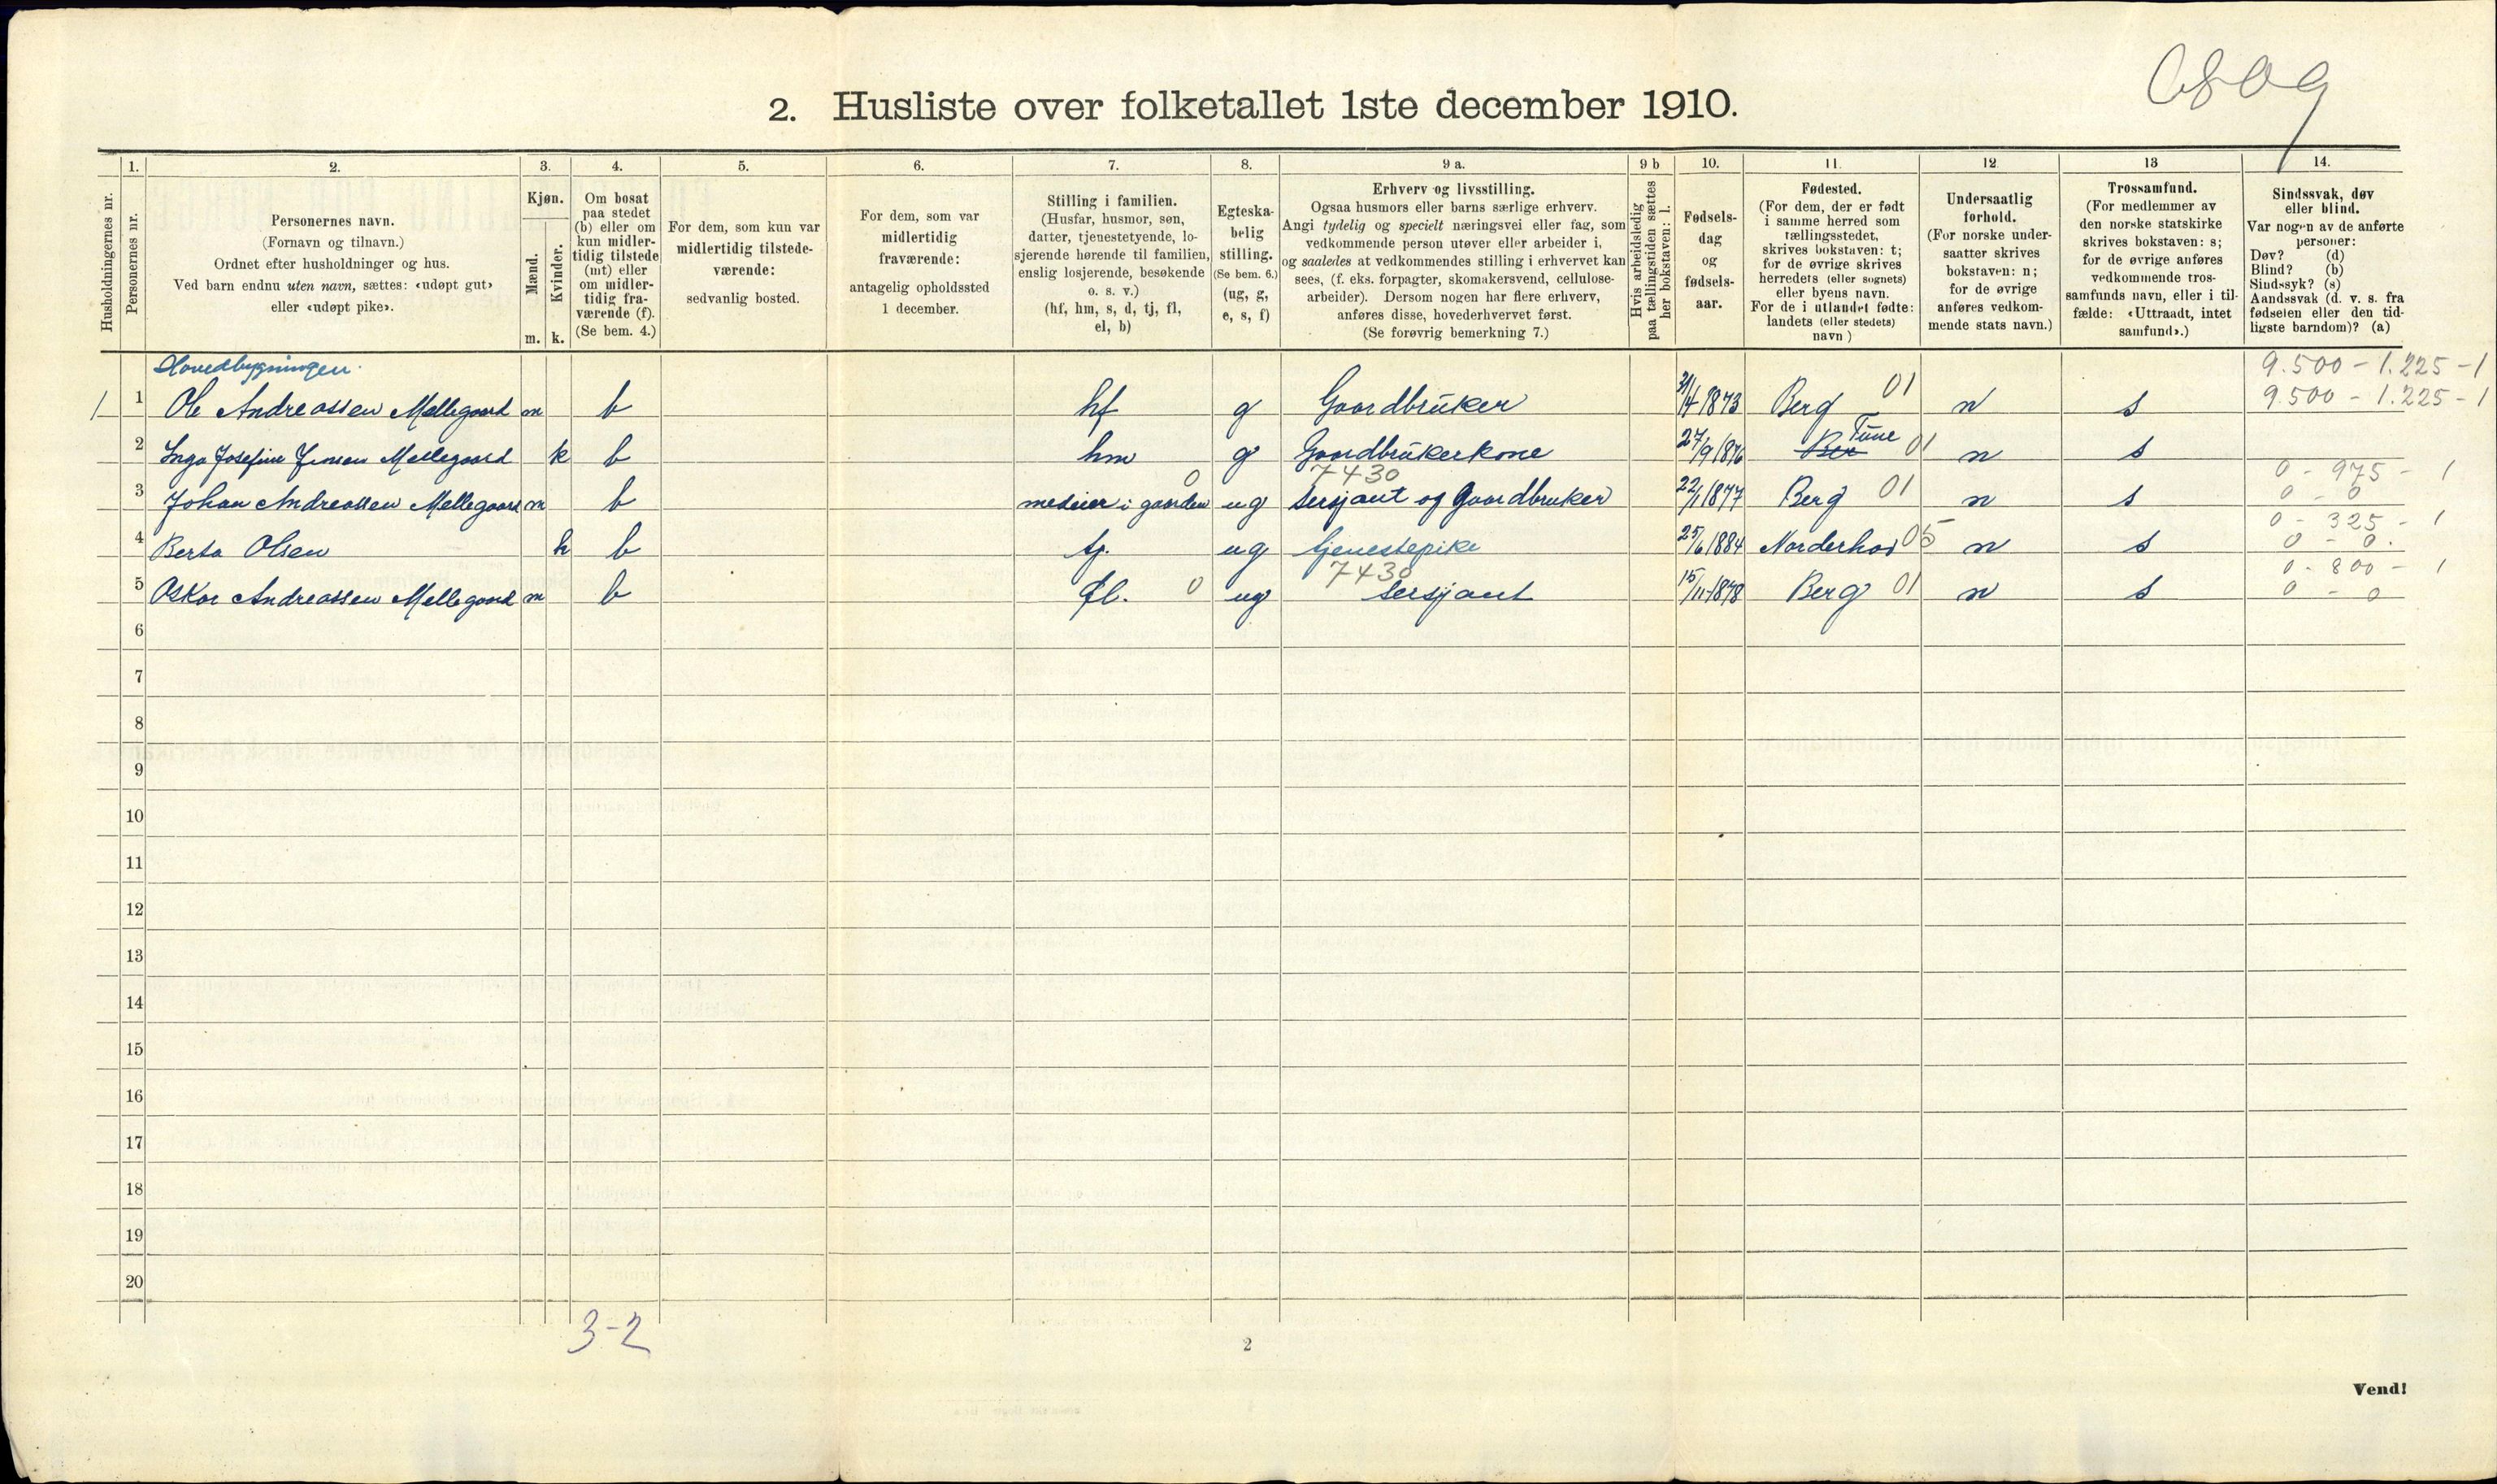 2. Husliste over folketallet 1ste december 1910.
Husholdningernes nr.
1. Personernes nr.
2. Personernes navn.
(Fornavn og tilnavn.)
Ordnet efter husholdninger og hus.
Ved barn endnu uten navn, sættes: «udøpt gut»
eller «udøpt pike».
3. Kjøn.
Mænd. Kvinder.
m. k.
4. Om bosat
paa stedet
(b) eller om
kun midler-
tidig tilstede
(mt) eller
om midler-
tidig fra-
værende (f).
(Se bem. 4.)
5. For dem, som kun var
midlertidig tilstede-
værende:
sedvanlig bosted.
6. For dem, som var
midlertidig
fraværende:
antagelig opholdssted
1 december.
7. Stilling i familien.
(Husfar, husmor, søn,
datter, tjenestetyende, lo-
sjerende hørende til familien,
enslig losjerende, besøkende
o. s. v.)
(hf, hm, s, d, tj, fl,
el, b)
8. Egteska-
belig
stilling.
(Se bem. 6.)
(ug, g,
e, s, f)
9 a. Erhverv og livsstilling.
Ogsaa husmors eller barns særlige erhverv.
Angi tydelig og specielt næringsvei eller fag, som
vedkommende person utøver eller arbeider i,
og saaledes at vedkommendes stilling i erhvervet kan
sees, (f. eks. forpagter, skomakersvend, cellulose-
arbeider). Dersom nogen har flere erhverv,
anføres disse, hovederhvervet først.
(Se forøvrig bemerkning 7.)
9 b Hvis arbeidsledig
paa tællingstiden sættes
her bokstaven: l.
10. Fødsels-
dag
og
fødsels-
aar.
11. Fødested.
(For dem, der er født
i samme herred som
tællingsstedet,
skrives bokstaven: t;
for de øvrige skrives
herredets (eller sognets)
eller byens navn.
For de i utlandet fødte:
landets (eller stedets)
navn)
12. Undersaatlig
forhold.
(For norske under-
saatter skrives
bokstaven: n;
for de øvrige
anføres vedkom-
mende stats navn.)
13 Trossamfund.
(For medlemmer av
den norske statskirke
skrives bokstaven: s;
for de øvrige anføres
vedkommende tros-
samfunds navn, eller i til-
fælde: «Uttraadt, intet
samfund».)
14. Sindssvak, døv
eller blind.
Var nogen av de anførte
personer:
Døv? (d)
Blind? (b)
Sindssyk? (s)
Aandssvak (d. v. s. fra
fødselen eller den tid-
ligste barndom)? (a)
Hovedbygningen. 9.500 - 1.225 - 1
1 1 Ole Andreassen Mellegaard m b hf g Gaardbruker 1873 Berg 01 n s 9.500 - 1.225 - 1
2 Inga Josefine Jensen Mellegaard k b hm g Gaardbrukerkone 27/9 1876 Ber Tune 01 n s
0 7430 0 - 975 - 1
3 Johan Andreassen Mellegaard m b medeier i gaarden ug Sersjant og Gaardbruker 22/1 1877 Berg 01 n s 0 - 0
0 - 325 - 1
4 Berta Olsen k b tj. ug tjenestepike 25/6 1884 Norderhov 05 n s 0 - 0.
7430 0 - 800 - 1
5 Oskar Andreassen Mellegaard m b fl. 0 ug Sersjant 15/11 1878 Berg 01 n s 0 - 0
6
7
8
9
10
11
12
13
14
15
16
17
18
19
20
3-2
2
Vend!